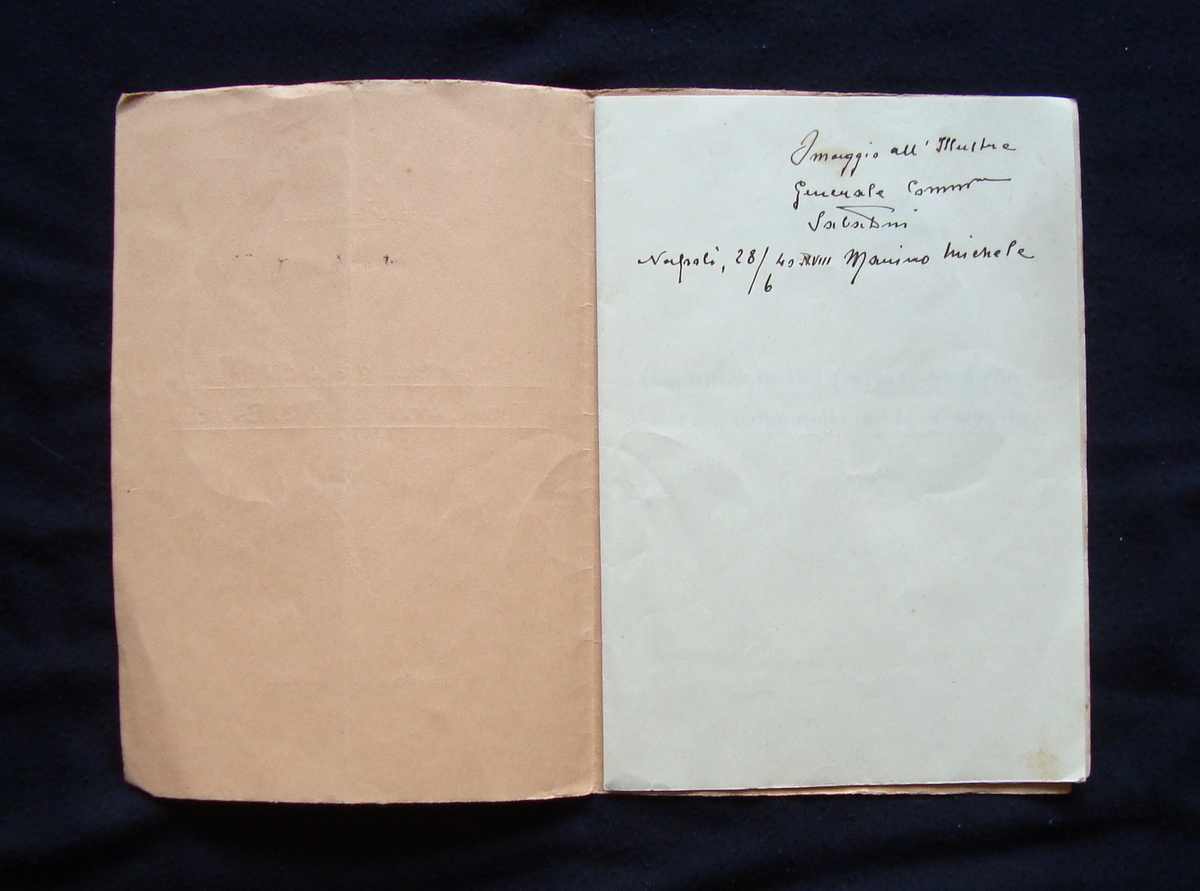 Omaggio all' Illustre
Generale Comm
Sabatini
Napoli, 28/6 40 XVIII Manino Michele